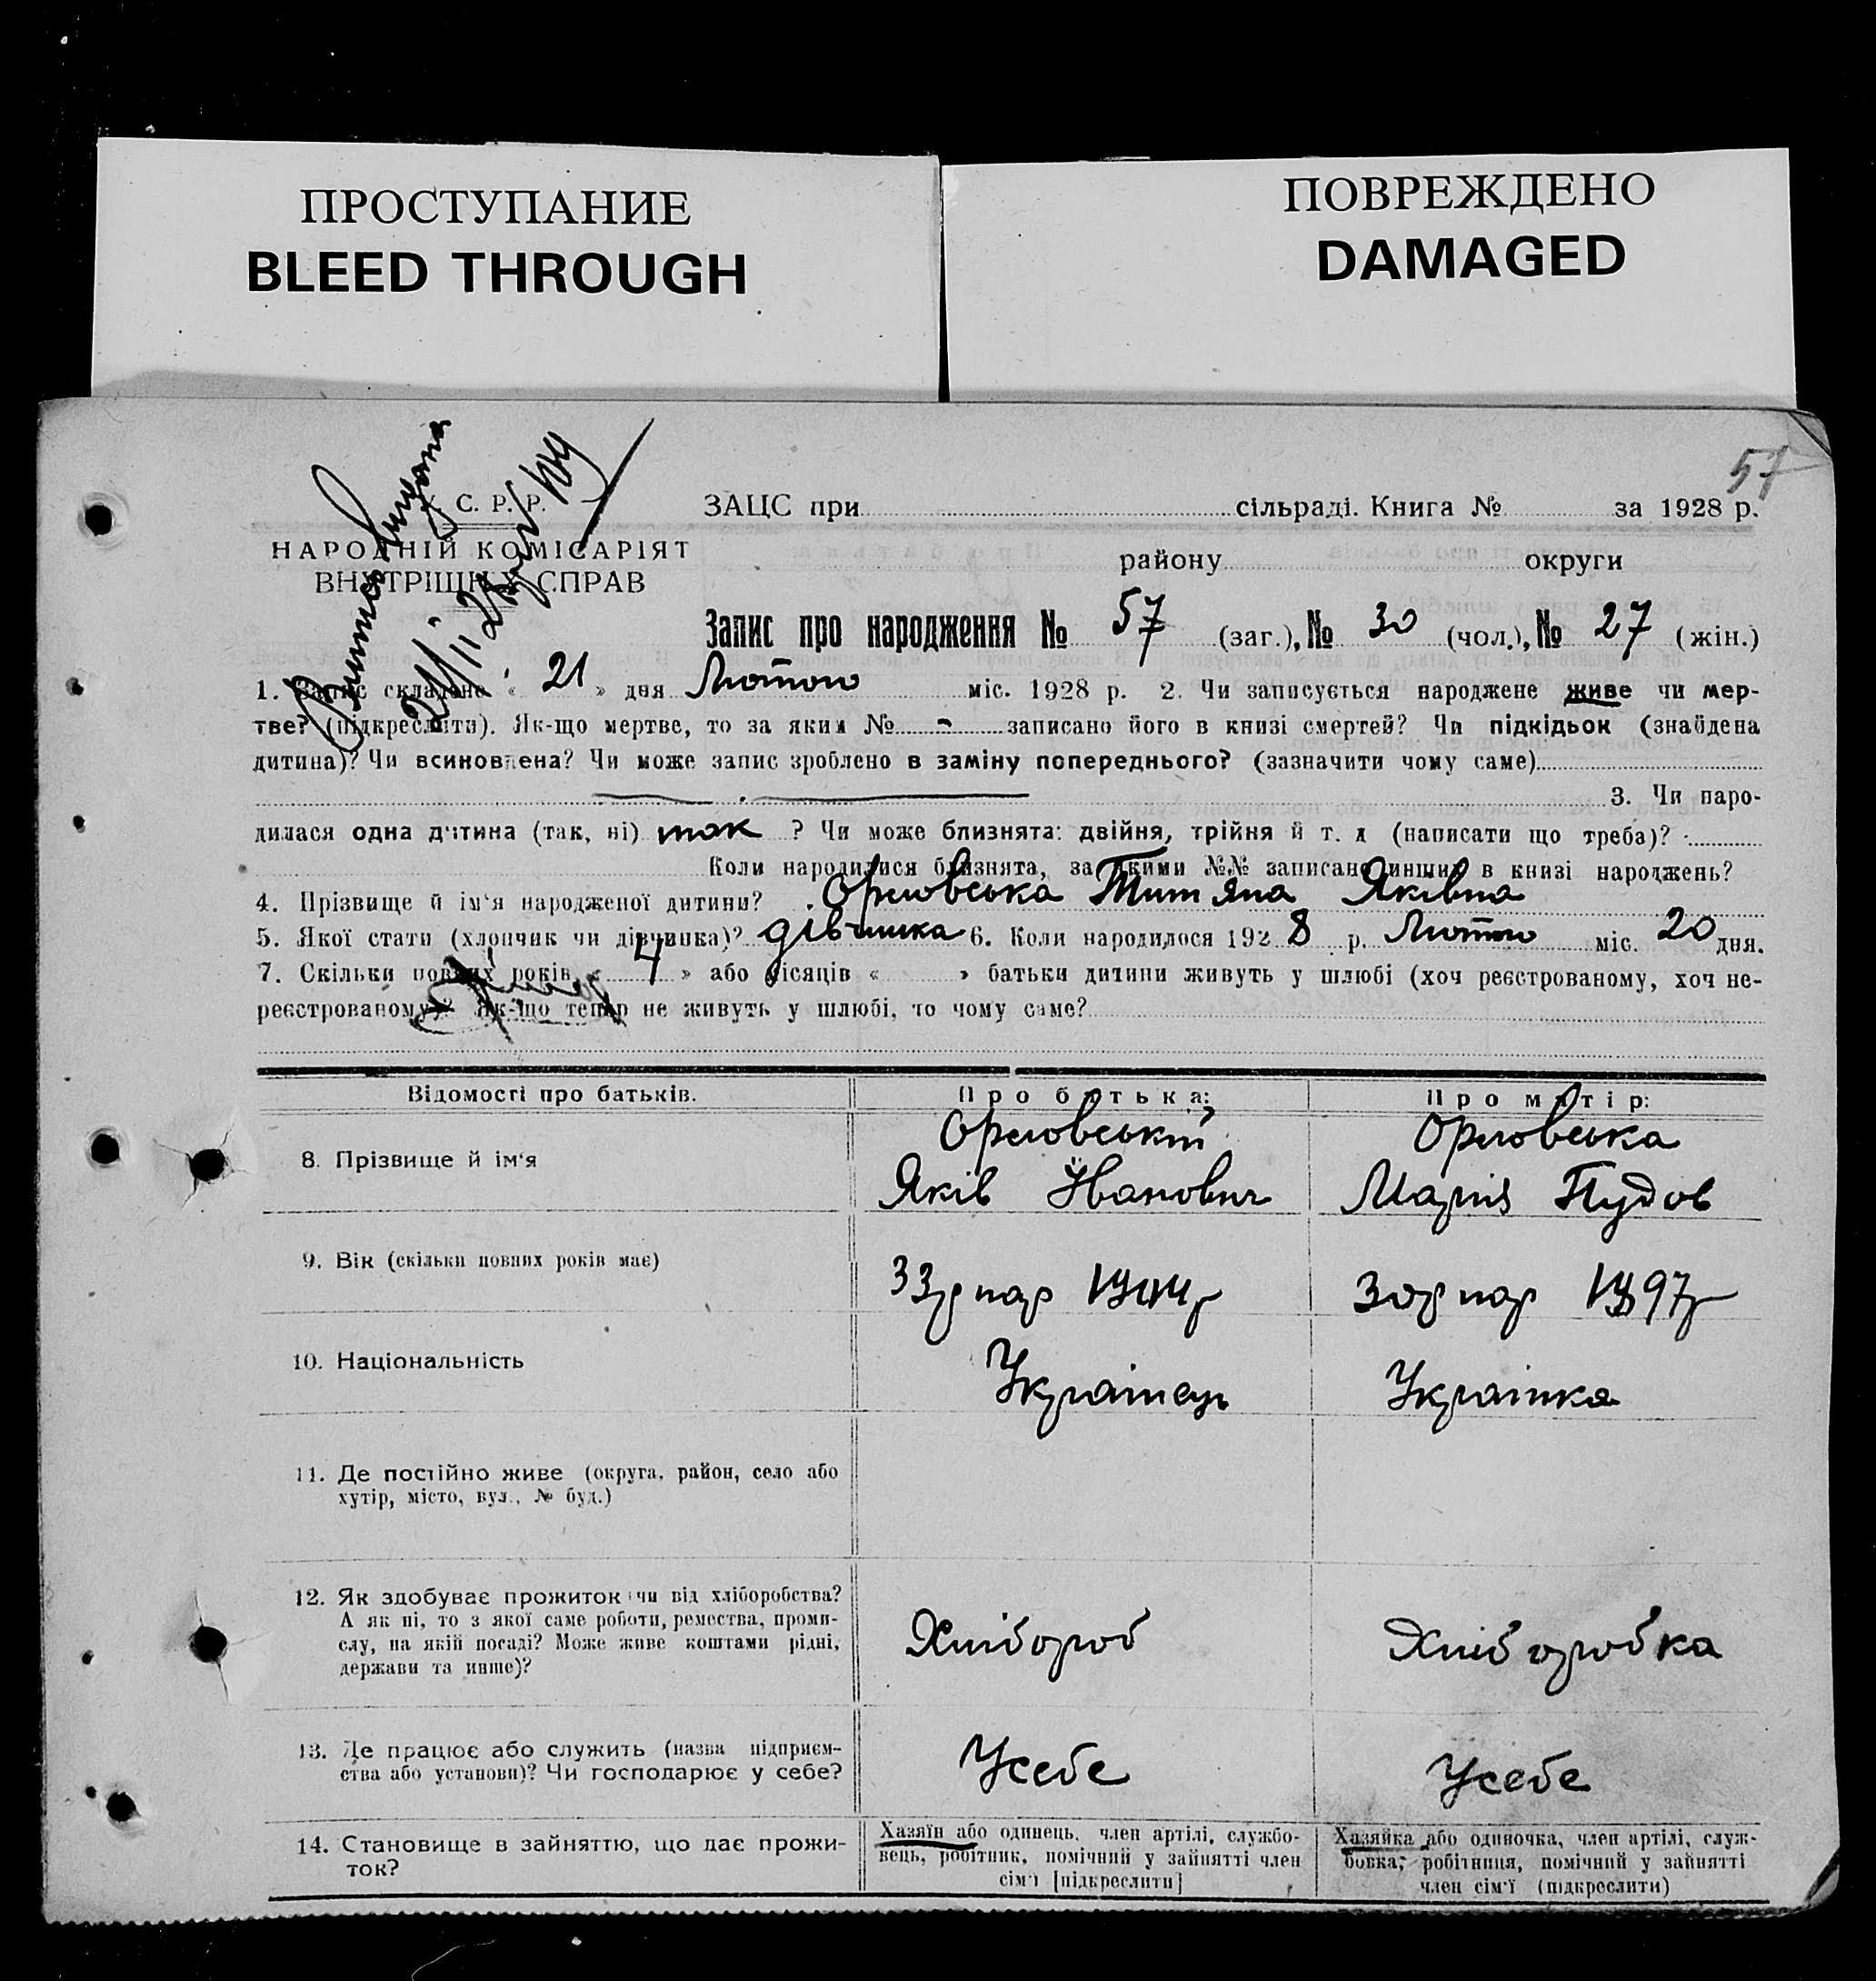 ПРОСТУПАНИЕ
BLEED THROUGH
ПОВРЕЖДЕНО
DAMAGED
57
С. Р. Р.
НАРОДНІЙ КОМІСАРІЯТ
ВНУТРІШНІХ СПРАВ
ЗАЦС при сільраді. Книга № за 1928 р.
району округи
Запис про народження № 57 (заг.), № 30 (чол.), № 27 (жін.)
1. Запис складено « 21 » дня Лютого міс. 1928 р. 2. Чи записується народжене живе чи мер-
тве? (підкреслити). Як-що мертве, то за яким № - записано його в книзі смертей? Чи підкідьок (знайдена
дитина)? Чи всиновлена? Чи може запис зроблено в заміну попереднього? (зазначити чому саме)
3. Чи наро-
дилася одна дитина (так, ні) так ? Чи може близнята: двійня, трійня й т. д (написати що треба)?
Коли народилися близнята, за якими №№ записано инших в книзі народжень?
4. Прізвище й ім'я народженої дитини? Орловська Титяна Яківна
5. Якої стати (хлопчик чи дівчинка)? дівчинка 6. Коли народилося 1928 р. Лютого міс. 20 дня.
7. Скільки повних років « 4 » або місяців « » батьки дитини живуть у шлюбі (хоч реєстрованому, хоч не-
реєстрованому)? Як-що тепер не живуть у шлюбі, то чому саме?
Відомості про батьків. Про батька: Про матір:
8. Прізвище й ім'я
Орловський Орловська
Яків Іванович Марія Пудов
9. Вік (скільки повних років має)
33р нар 30р нар
10. Національність
Українець Українка
11. Де постійно живе (округа, район, село або
хутір, місто, вул., № буд.)
12. Як здобуває прожиток чи від хліборобства?
А як ні, то з якої саме роботи, ремества, проми-
слу, на якій посаді? Може живе коштами рідні,
держави та инше)?
Хлібороб Хліборобка
13. Де працює або служить (назва підприєм-
ства або установи)? Чи господарює у себе?
Усебе Усебе
14. Становище в зайняттю, що дає прожи-
ток?
Хазяїн або одинець, член артілі, службо-
вець, робітник, помічний у зайнятті член
сім'ї [підкреслити]
Хазяйка або одиночка, член артілі, служ-
бовка, робітниця, помічний у зайнятті
член сім'ї (підкреслити)